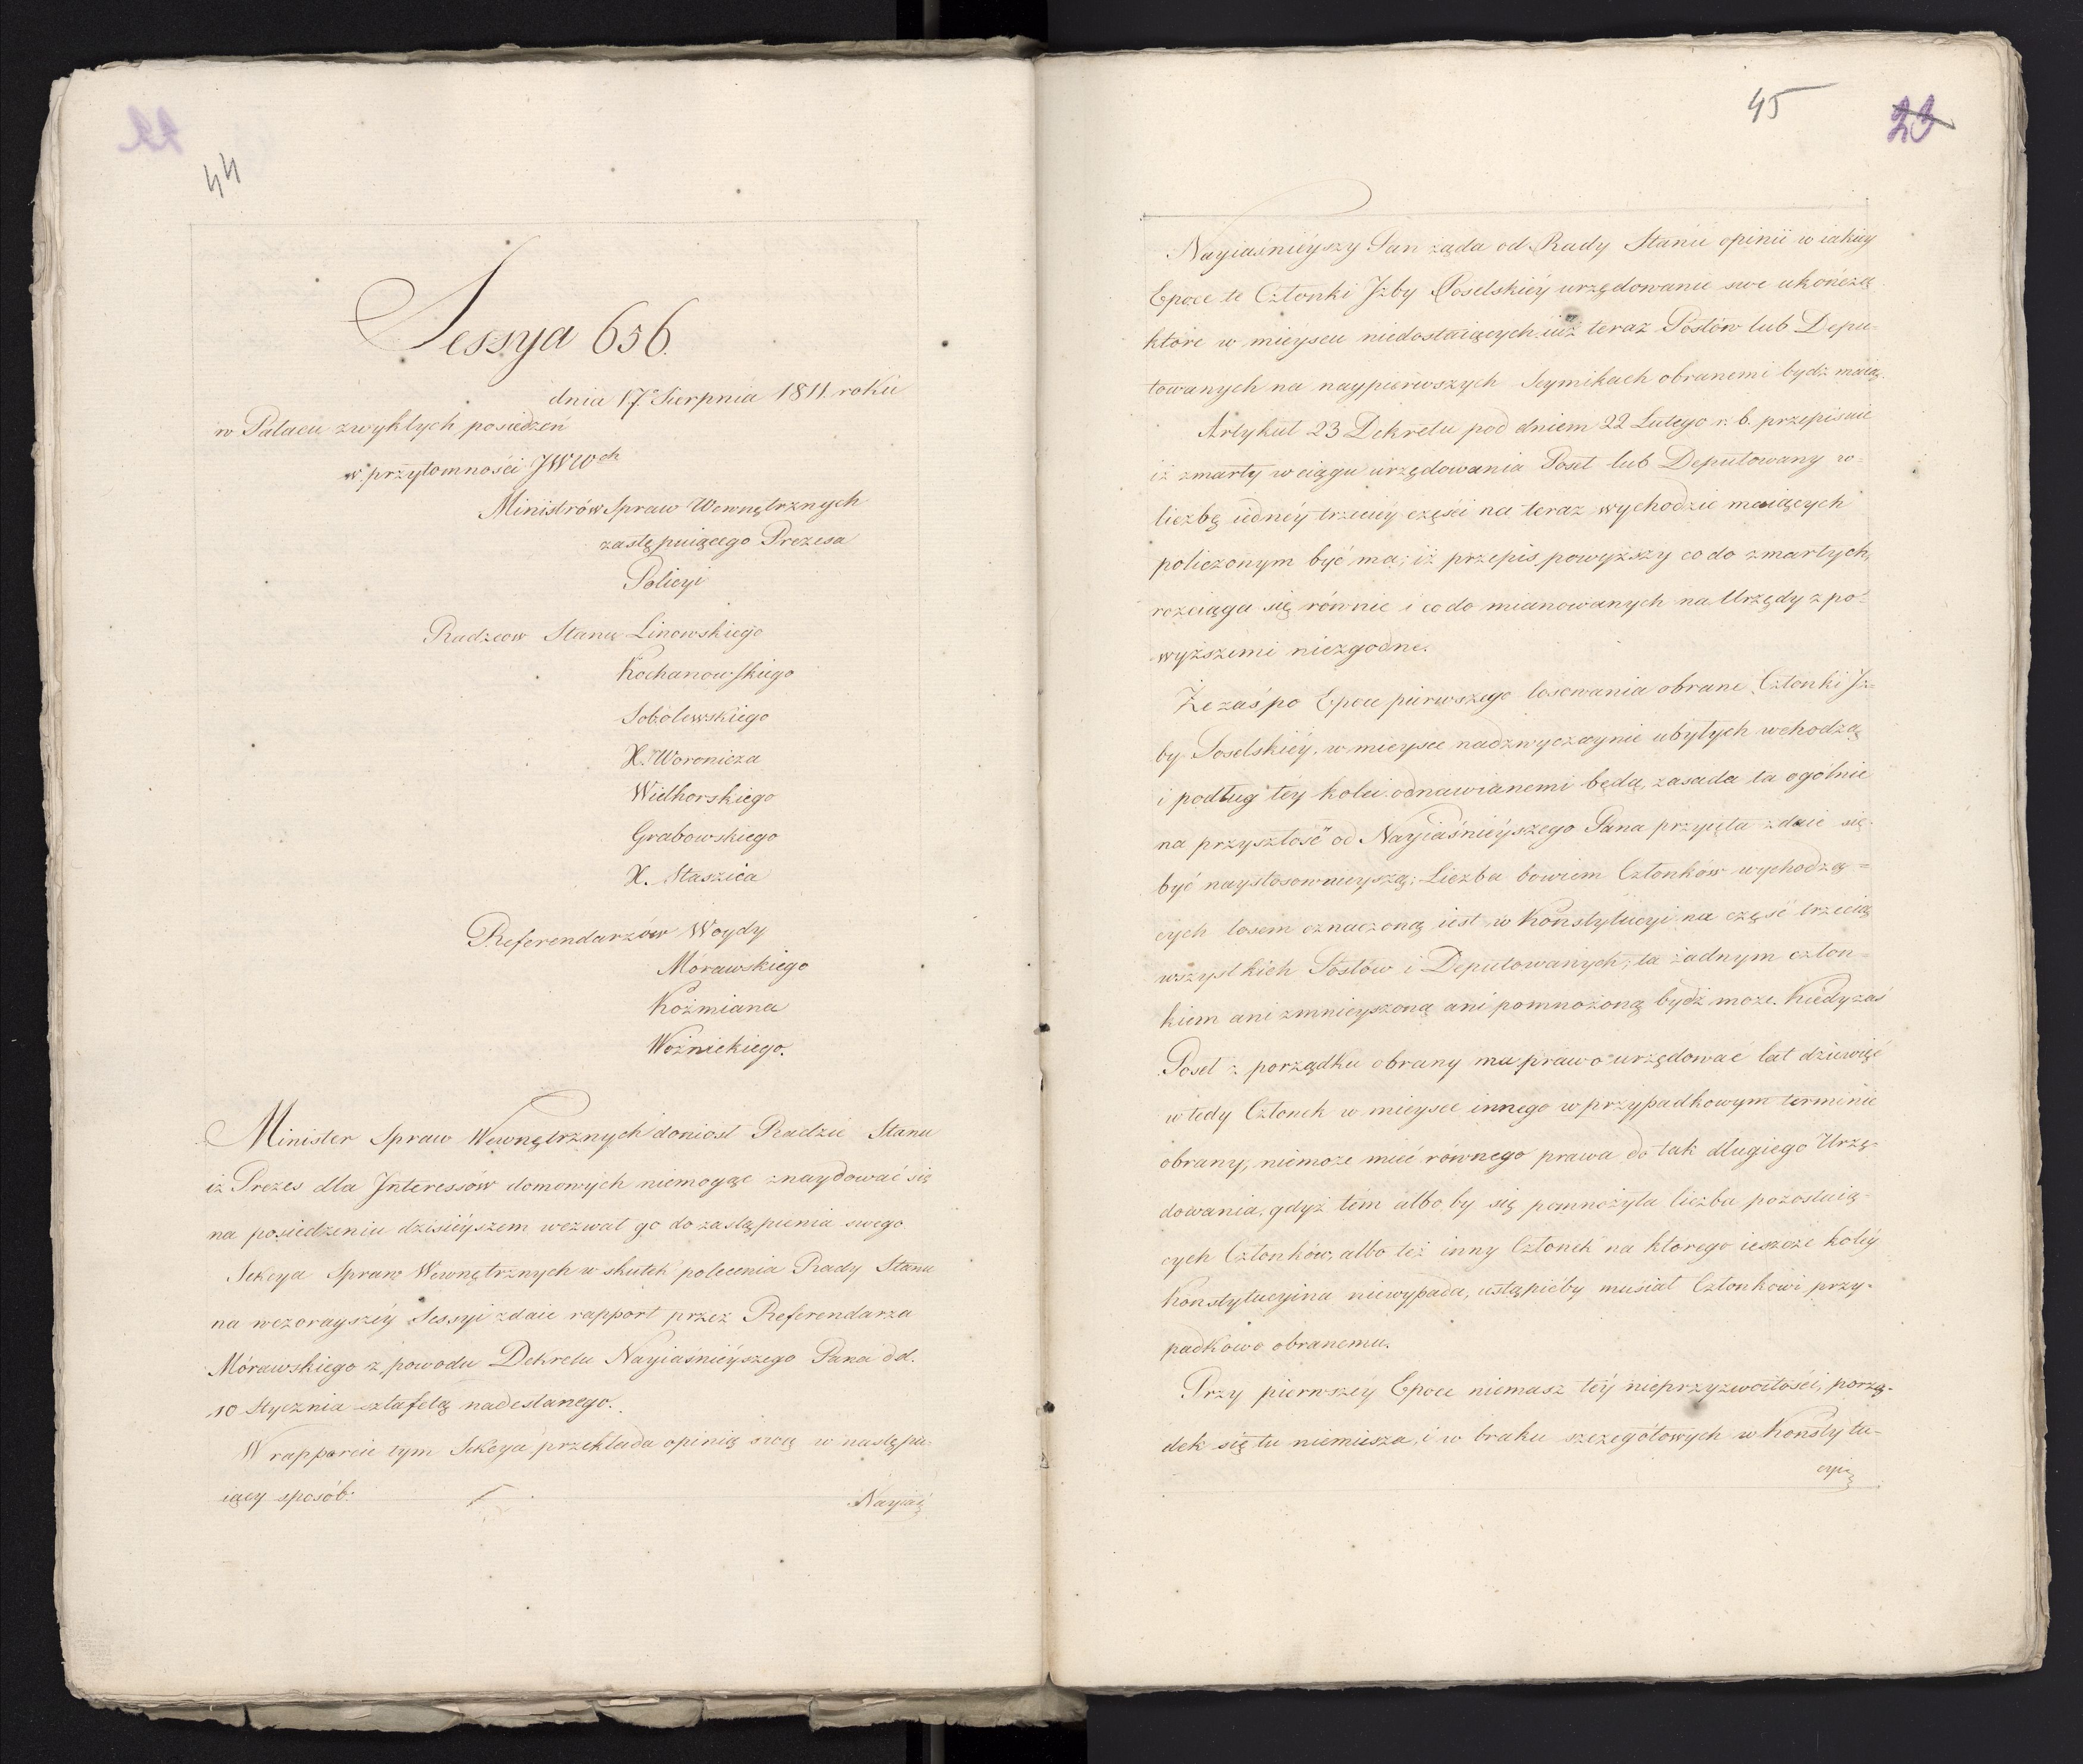 44
Sessya 656.
dnia 17. Sierpnia 1811. roku
w Pałacu zwykłych posiedzeń
w przytomności JWWch
Ministrów Spraw Wewnętrznych
zastępuiącego Prezesa
Policyi
Radzców Stanu Linowskiego
Kochanowskiego
Sobolewskiego
X. Woronicza
Wielhorskiego
Grabowskiego
X. Staszica
Referendarzów Woydy
Mórawskiego
Koźmiana
Woźnickiego.
Minister Spraw Wewnętrznych doniosł Radzie Stanu
iż Prezes dla Interessów domowych niemogąc znaydować się
na posiedzeniu dzisiéyszem wezwał go do zastąpienia swego.
Sekcya Spraw Wewnętrznych w skutek polecenia Rady Stanu
na wczorayszéy Sessyi zdaie rapport przez Referendarza
Mórawskiego z powodu Dekretu Nayiaśnieyszego Pana dd.
10 Stycznia sztafetą nadesłanego.
W rapporcie tym Sekcya przekłada opinią swą w następu-
iący sposób:
Nayiaś
45
23
Nayiaśniéyszy Pan żąda od Rady Stanu opinii w iakiey
Epoce te Członki Izby Poselskiéy urzędowanie swe ukończą
które w mieyscu niedostaiących iuż teraz Posłów lub Depu-
towanych na naypierwszych Seymikach obranemi bydź maią.
Artykuł 23 Dekretu pod dniem 22 Lutego r. b. przepisuie
iż zmarły w ciągu urzędowania Poseł lub Deputowany w
liczbę iednéy trzeciéy części na teraz wychodzić maiących
policzonym być ma; iż przepis powyższy co do zmarłych,
rozciąga się równie i co do mianowanych na Urzędy z po-
wyższemi niezgodne.
Że zaś po Epoce pierwszego losowania obrane Członki Iz-
by Poselskiéy, w mieysce nadzwyczaynie ubyłych wchodzą
i podług téy kolei odnawianemi będą, zasada ta ogólnie
na przyszłość od Nayiaśniéyszego Pana przyięta zdaie się
być naystosownieyszą; Liczba bowiem Członków wychodzą=
cych losem oznaczoną iest w Konstytucyi na część trzecią
wszystkich Posłów i Deputowanych; ta żadnym człon=
kiem ani zmnieyszoną ani pomnożoną bydź może. Kiedy zaś
Poseł z porządku obrany ma prawo urzędować lat dziewięć
wtedy Członek w mieysce innego w przypadkowym terminie
obrany, niemoże mieć równego prawa do tak długiego Urzę-
dowania, gdyż tém albo by się pomnożyła liczba pozostaią-
cych Członków, albo też inny Członek na ktorego ieszcze koléy
Konstytucyina niewypada, ustąpićby musiał Członkowi przy-
padkowo obranemu.
Przy pierwszéy Epoce niemasz téy nieprzyzwoitości, porzą-
dek się tu niemiesza, i w braku szczegółowych w Konstytu-
cyią